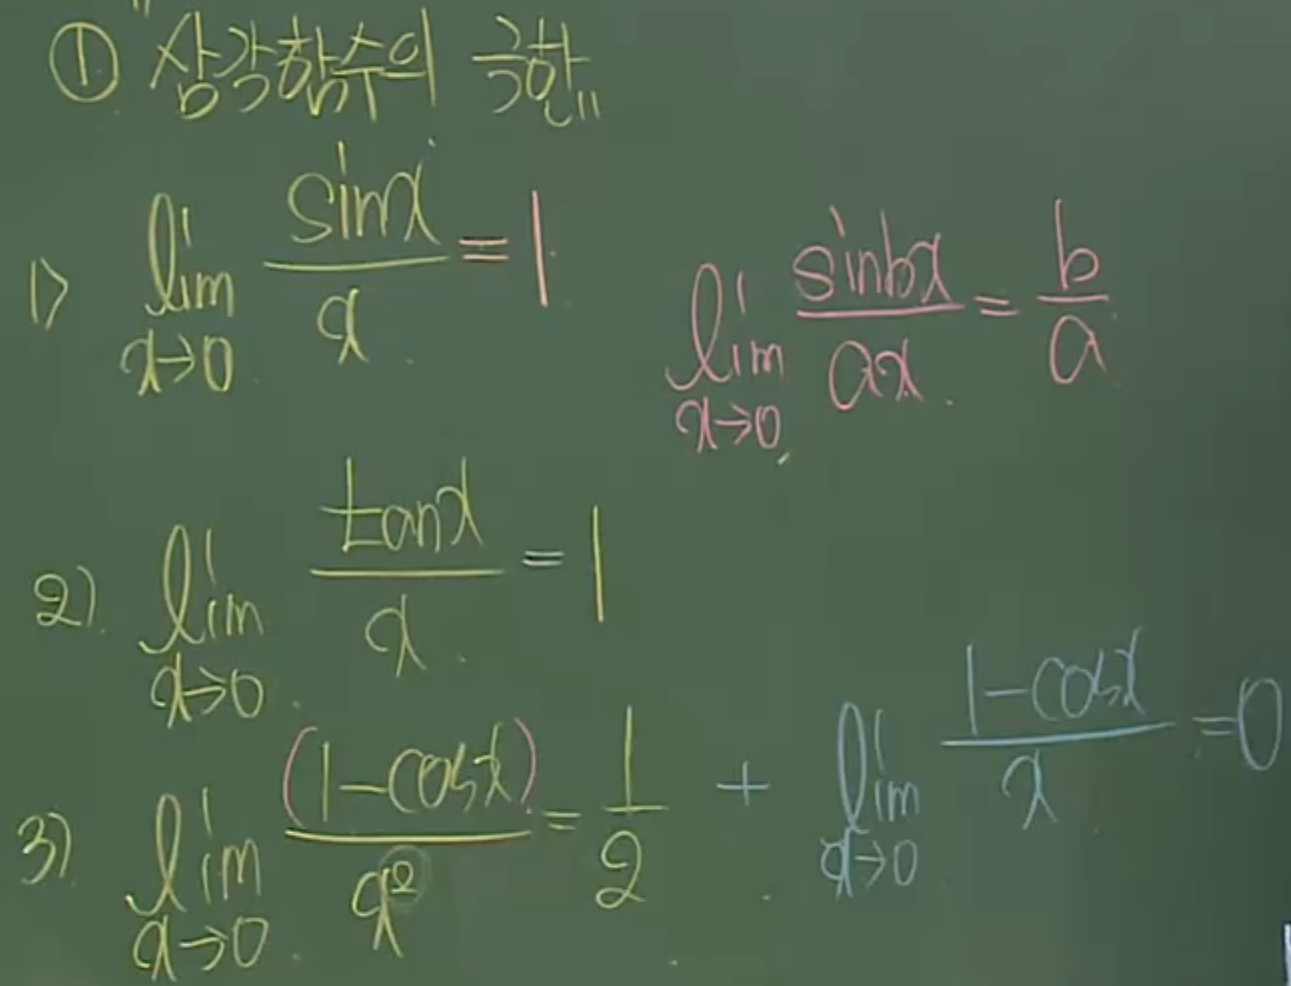 ① "삼각함수의 극한"
1) lim_{x→0} sinx/x = 1
lim_{x→0} sinbx/ax = b/a
2) lim_{x→0} tanx/x = 1
3) lim_{x→0} (1-cosx)/x² = 1/2 + lim_{x→0} 1-cosx/x = 0